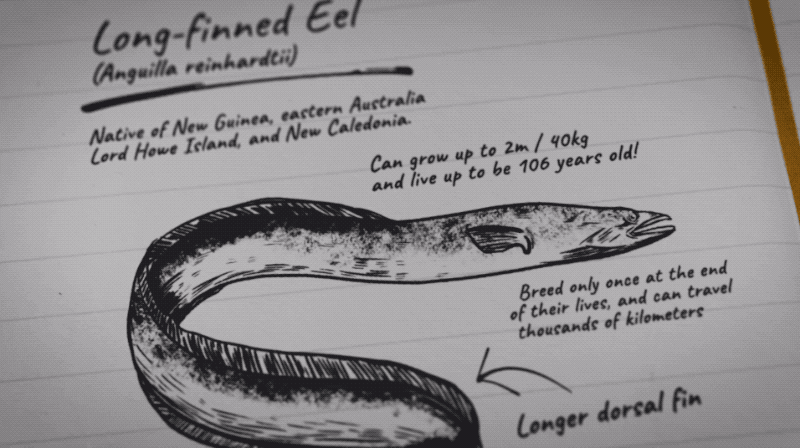 Long-finned Eel
(Anguilla reinhardtii)
Native of New Guinea, eastern Australia
Lord Howe Island, and New Caledonia.
Can grow up to 2m / 40kg
and live up to be 106 years old!
Breed only once at the end
of their lives, and can travel
thousands of kilometers
Longer dorsal fin